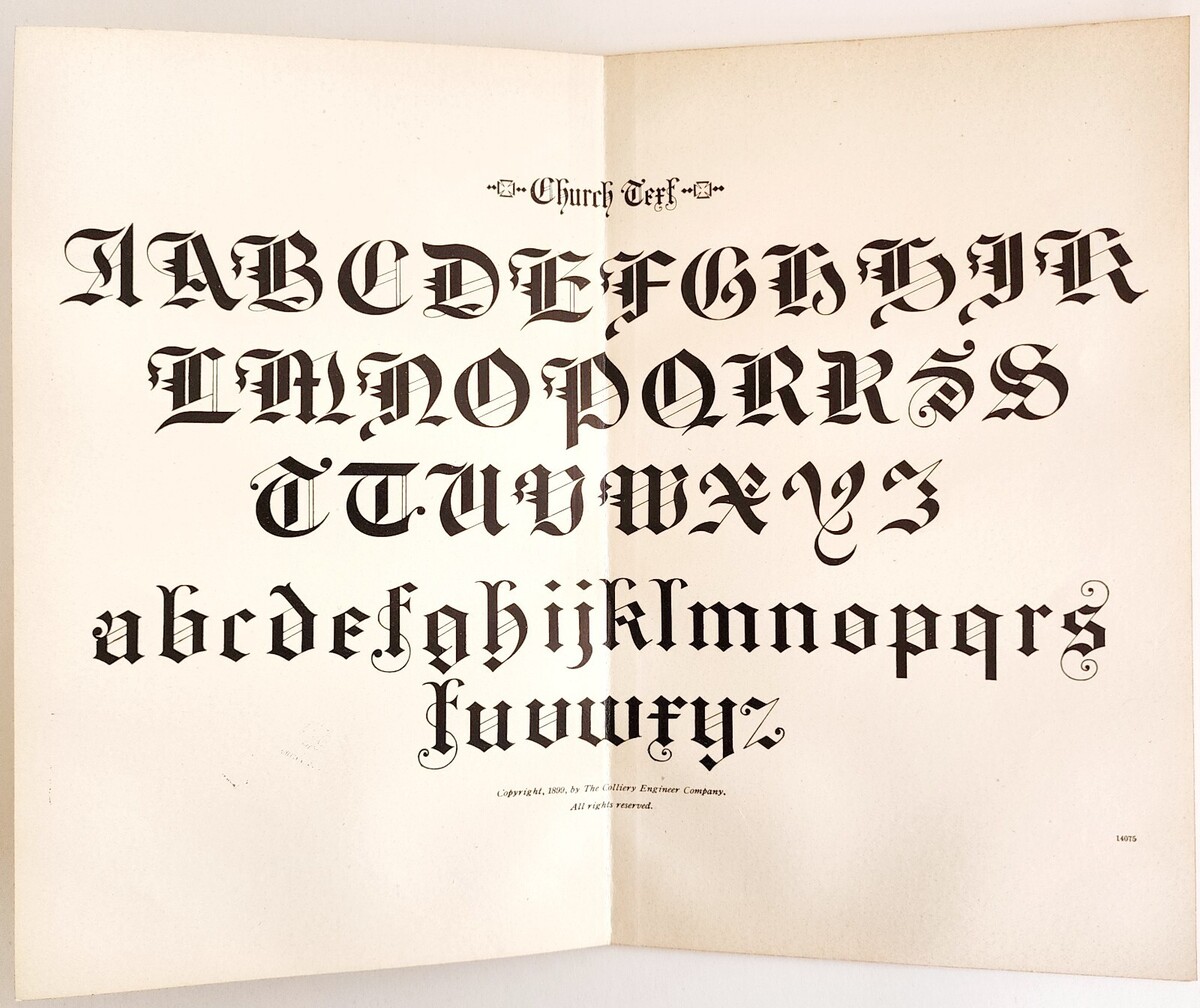 Church Text
A A B C D E F G H H I K
L M N O P Q R R S S
T T U V W X Y Z
a b c d e f g h i j k l m n o p q r s
t u v w x y z
Copyright, 1899, by The Colliery Engineer Company.
All rights reserved.
14075